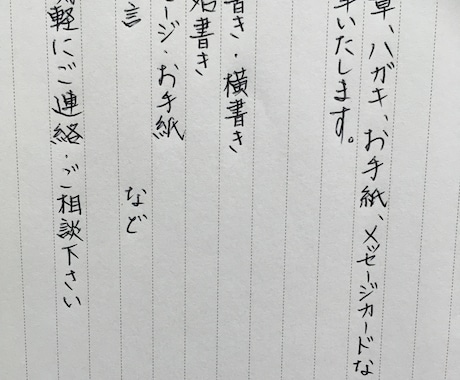 章、ハガキ、お手紙、メッセージカードな
筆いたします。
書き・横書き
書き
ージ・お手紙
言
など
軽にご連絡・ご相談下さい